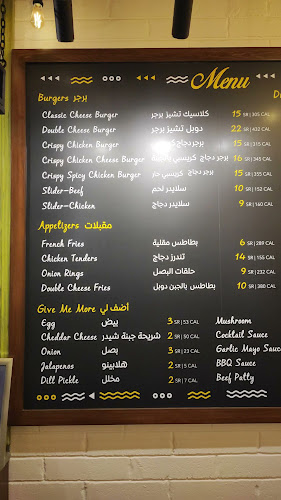 Menu
Burgers برجر
Classic Cheese Burger كلاسيك تشيز برجر 15 SR | 305 CAL
Double Cheese Burger دوبل تشيز برجر 22 SR | 432 CAL
Crispy Chicken Burger برجر دجاج 15 SR | 315 CAL
Crispy Chicken Cheese Burger برجر دجاج كريسبي 16 SR | 345 CAL
Crispy Spicy Chicken Burger برجر دجاج كريسبي حار 15 SR | 355 CAL
Slider-Beef سلايدر لحم 10 SR | 152 CAL
Slider-Chicken سلايدر دجاج 9 SR | 160 CAL
Appetizers مقبلات
French Fries بطاطس مقلية 6 SR | 289 CAL
Chicken Tenders تندرز دجاج 14 SR | 155 CAL
Onion Rings حلقات البصل 9 SR | 232 CAL
Double Cheese Fries بطاطس بالجبن دوبل 10 SR | 380 CAL
Give Me More أضف لي
Egg بيض 3 SR | 53 CAL
Cheddar Cheese شريحة جبنة شيدر 2 SR | 50 CAL
Onion بصل 3 SR | 23 CAL
Jalapenos هلابينو 2 SR | 5 CAL
Dill Pickle مخلل 2 SR | 7 CAL
Mushroom
Cocktail Sauce
Garlic Mayo Sauce
BBQ Sauce
Beef Patty